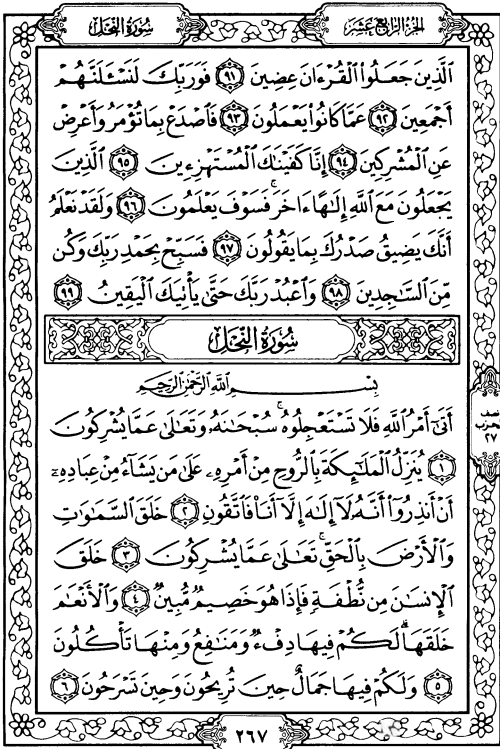 سُورَةُ النَّحْلِ
الجُزءُ الرَّابِعَ عَشَرَ
الَّذِينَ جَعَلُوا الْقُرْءَانَ عِضِينَ ٩١ فَوَرَبِّكَ لَنَسْـَٔلَنَّهُمْ
أَجْمَعِينَ ٩٢ عَمَّا كَانُوا يَعْمَلُونَ ٩٣ فَاصْدَعْ بِمَا تُؤْمَرُ وَأَعْرِضْ
عَنِ الْمُشْرِكِينَ ٩٤ إِنَّا كَفَيْنَاكَ الْمُسْتَهْزِءِينَ ٩٥ الَّذِينَ
يَجْعَلُونَ مَعَ اللَّهِ إِلَٰهًا ءَاخَرَ ۚ فَسَوْفَ يَعْلَمُونَ ٩٦ وَلَقَدْ نَعْلَمُ
أَنَّكَ يَضِيقُ صَدْرُكَ بِمَا يَقُولُونَ ٩٧ فَسَبِّحْ بِحَمْدِ رَبِّكَ وَكُن
مِّنَ السَّاجِدِينَ ٩٨ وَاعْبُدْ رَبَّكَ حَتَّىٰ يَأْتِيَكَ الْيَقِينُ ٩٩
سُورَةُ النَّحْلِ
بِسْمِ اللَّهِ الرَّحْمَٰنِ الرَّحِيمِ
أَتَىٰٓ أَمْرُ اللَّهِ فَلَا تَسْتَعْجِلُوهُ ۚ سُبْحَانَهُ وَتَعَالَىٰ عَمَّا يُشْرِكُونَ
١ يُنَزِّلُ الْمَلَائِكَةَ بِالرُّوحِ مِنْ أَمْرِهِ عَلَىٰ مَن يَشَاءُ مِنْ عِبَادِهِ
أَنْ أَنذِرُوا أَنَّهُ لَا إِلَٰهَ إِلَّا أَنَا فَاتَّقُونِ ٢ خَلَقَ السَّمَاوَاتِ
وَالْأَرْضَ بِالْحَقِّ ۚ تَعَالَىٰ عَمَّا يُشْرِكُونَ ٣ خَلَقَ
الْإِنسَانَ مِن نُّطْفَةٍ فَإِذَا هُوَ خَصِيمٌ مُّبِينٌ ٤ وَالْأَنْعَامَ
خَلَقَهَا ۗ لَكُمْ فِيهَا دِفْءٌ وَمَنَافِعُ وَمِنْهَا تَأْكُلُونَ
٥ وَلَكُمْ فِيهَا جَمَالٌ حِينَ تُرِيحُونَ وَحِينَ تَسْرَحُونَ ٦
نصف
الحزب
٢٧
٢٦٧